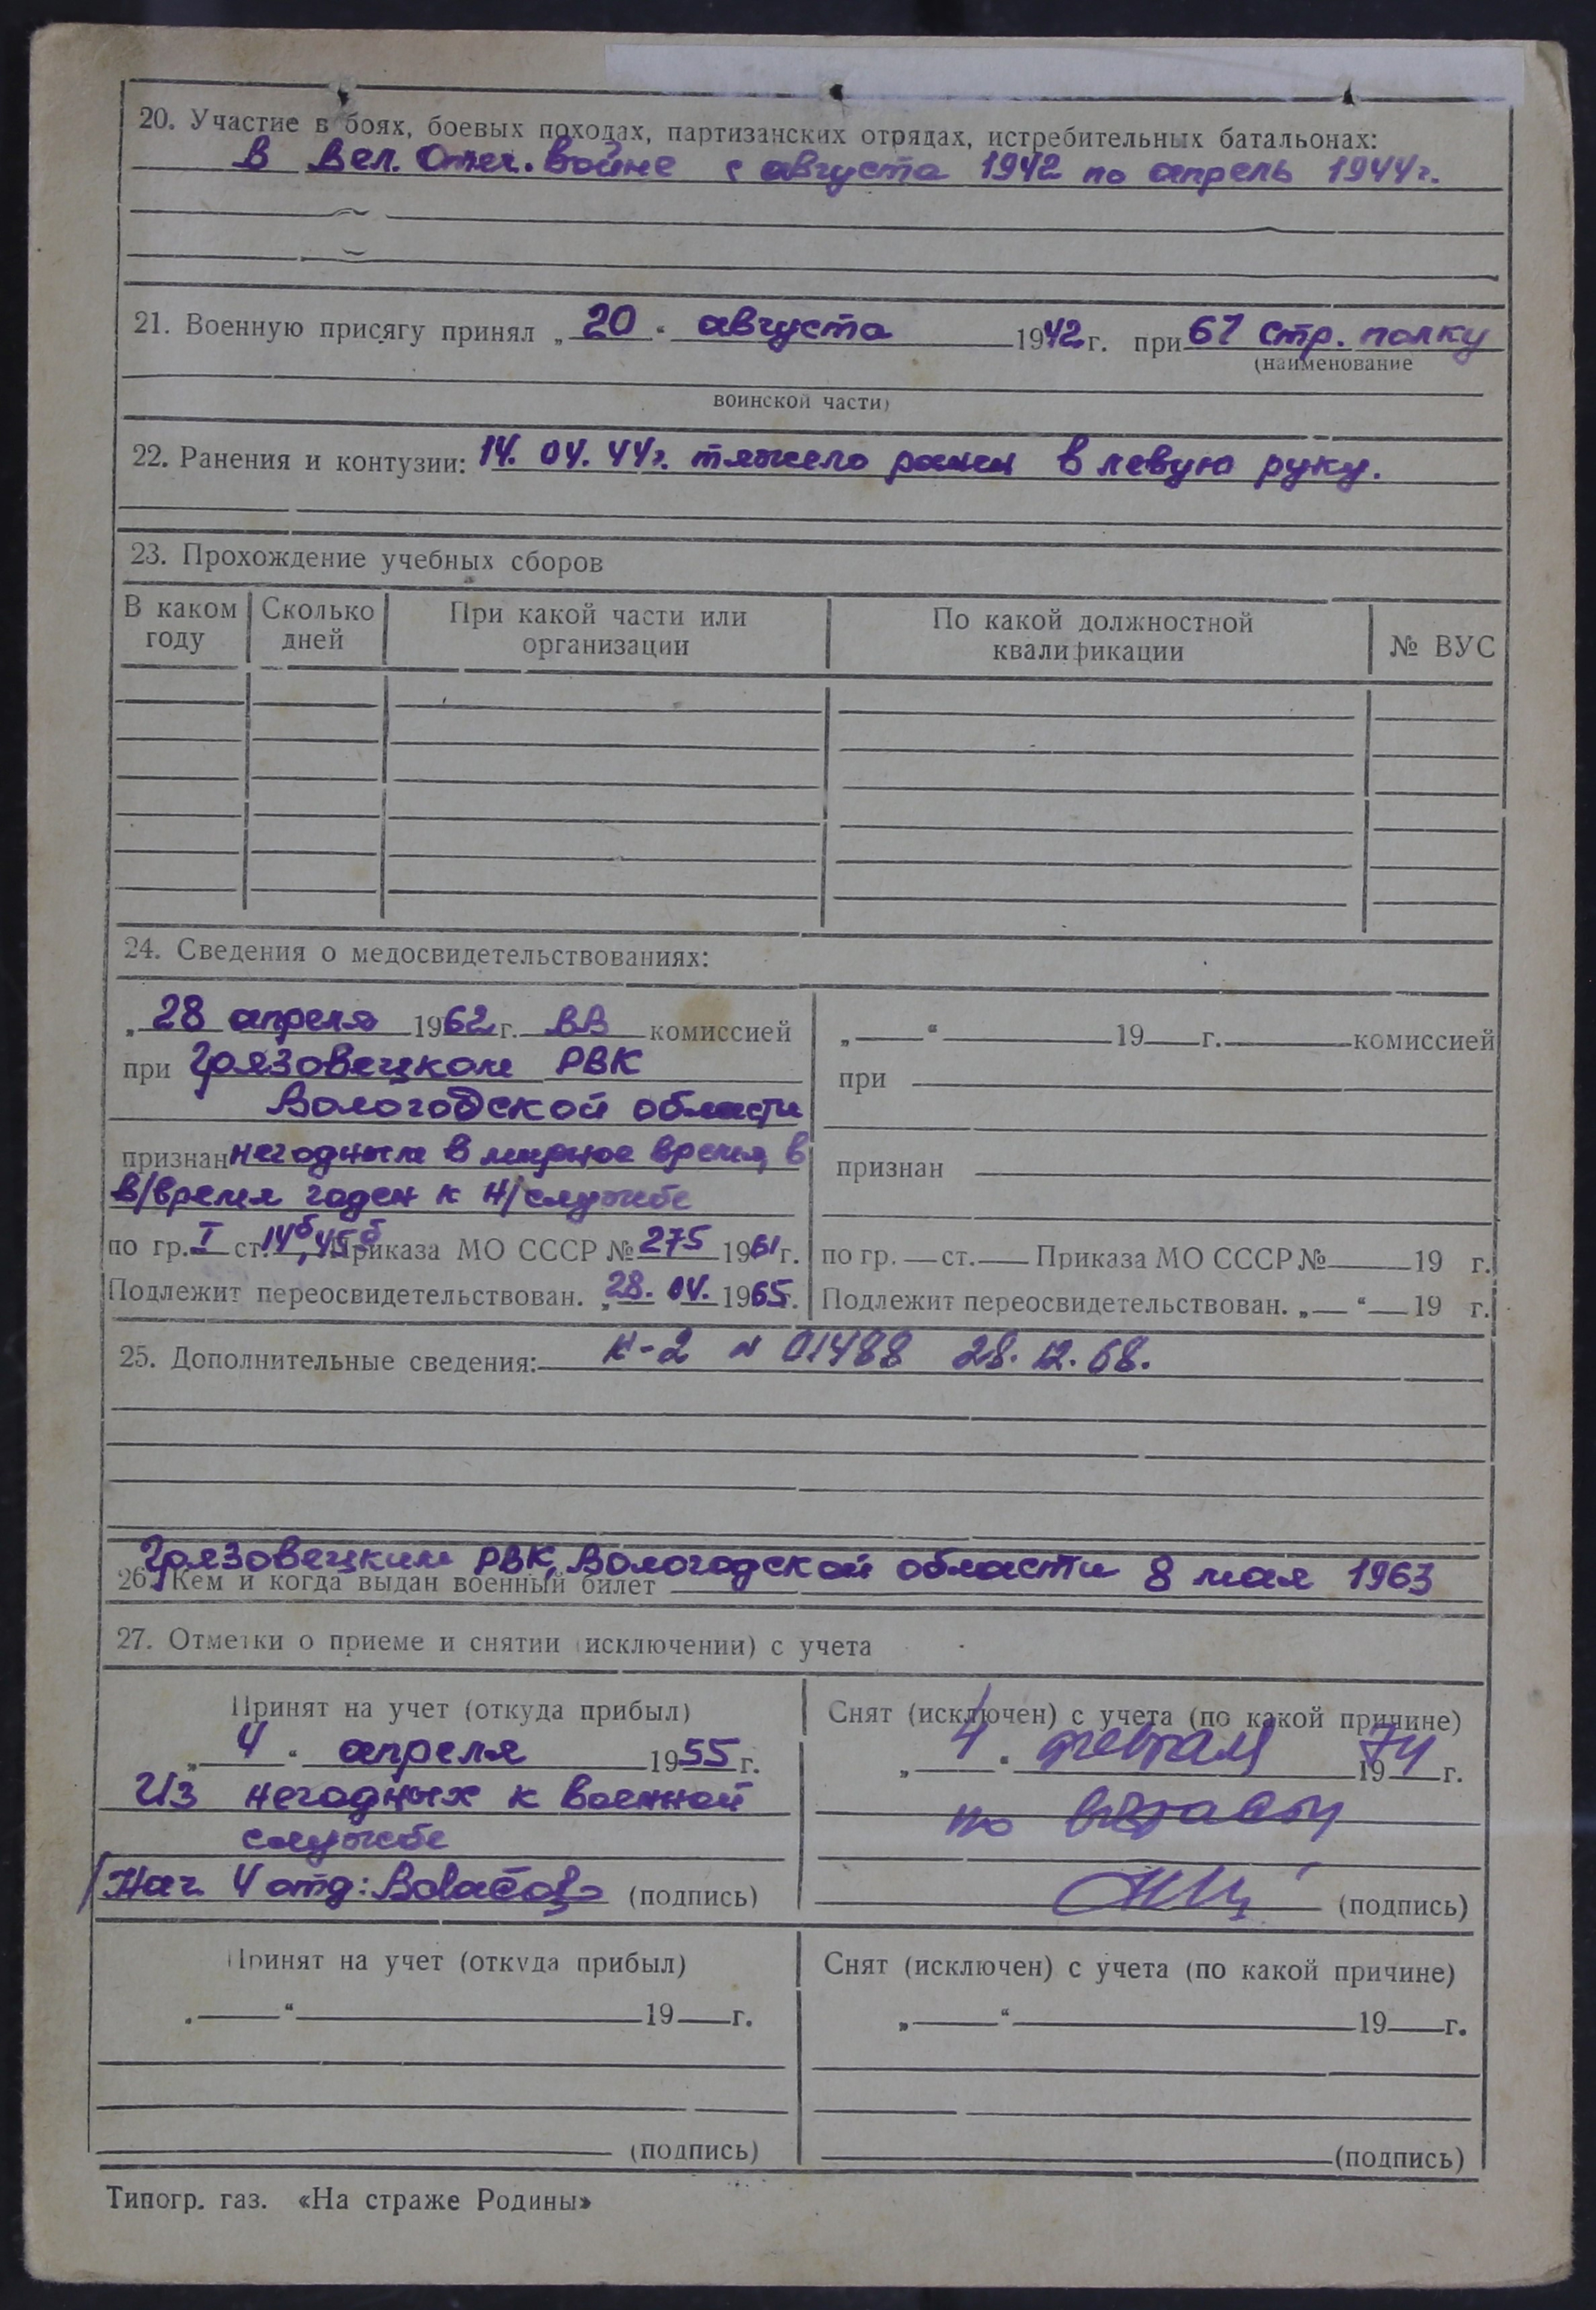 20. Участие в боях, боевых походах, партизанских отрядах, истребительных батальонах:
в Вел. Отеч. войне с августа 1942 по апрель 1944 г.
21. Военную присягу принял „20“ августа 1942 г. при 61 стр. полку
(наименование
воинской части)
22. Ранения и контузии: 14. 04. 44 г. тяжело ранен в левую руку.
23. Прохождение учебных сборов
В каком году Сколько дней При какой части или организации По какой должностной квалификации № ВУС
24. Сведения о медосвидетельствованиях:
„28 апреля 1962 г. ВВ комиссией
при Грязовецком РВК
Вологодской области
признан негодным в мирное время, в
в/время годен к н/службе
по гр. I ст. 14б, 45б Приказа МО СССР № 275 1961 г.
Подлежит переосвидетельствован. „28. 04. 1965.
„ “ 19 г. комиссией
при
признан
по гр. ст. Приказа МО СССР № 19 г.
Подлежит переосвидетельствован. „ “ 19 г.
25. Дополнительные сведения: К-2 № 01488 28. 12. 68.
Грязовецким РВК, Вологодской области 8 мая 1963
26. Кем и когда выдан военный билет
27. Отметки о приеме и снятии (исключении) с учета
Принят на учет (откуда прибыл)
„4“ апреля 1955 г.
Из негодных к военной
службе
Нач 4 отд: (подпись)
Снят (исключен) с учета (по какой причине)
„4“ февраля 1974 г.
по возрасту
(подпись)
Принят на учет (откуда прибыл)
„ “ 19 г.
(подпись)
Снят (исключен) с учета (по какой причине)
„ “ 19 г.
(подпись)
Типогр. газ. «На страже Родины»